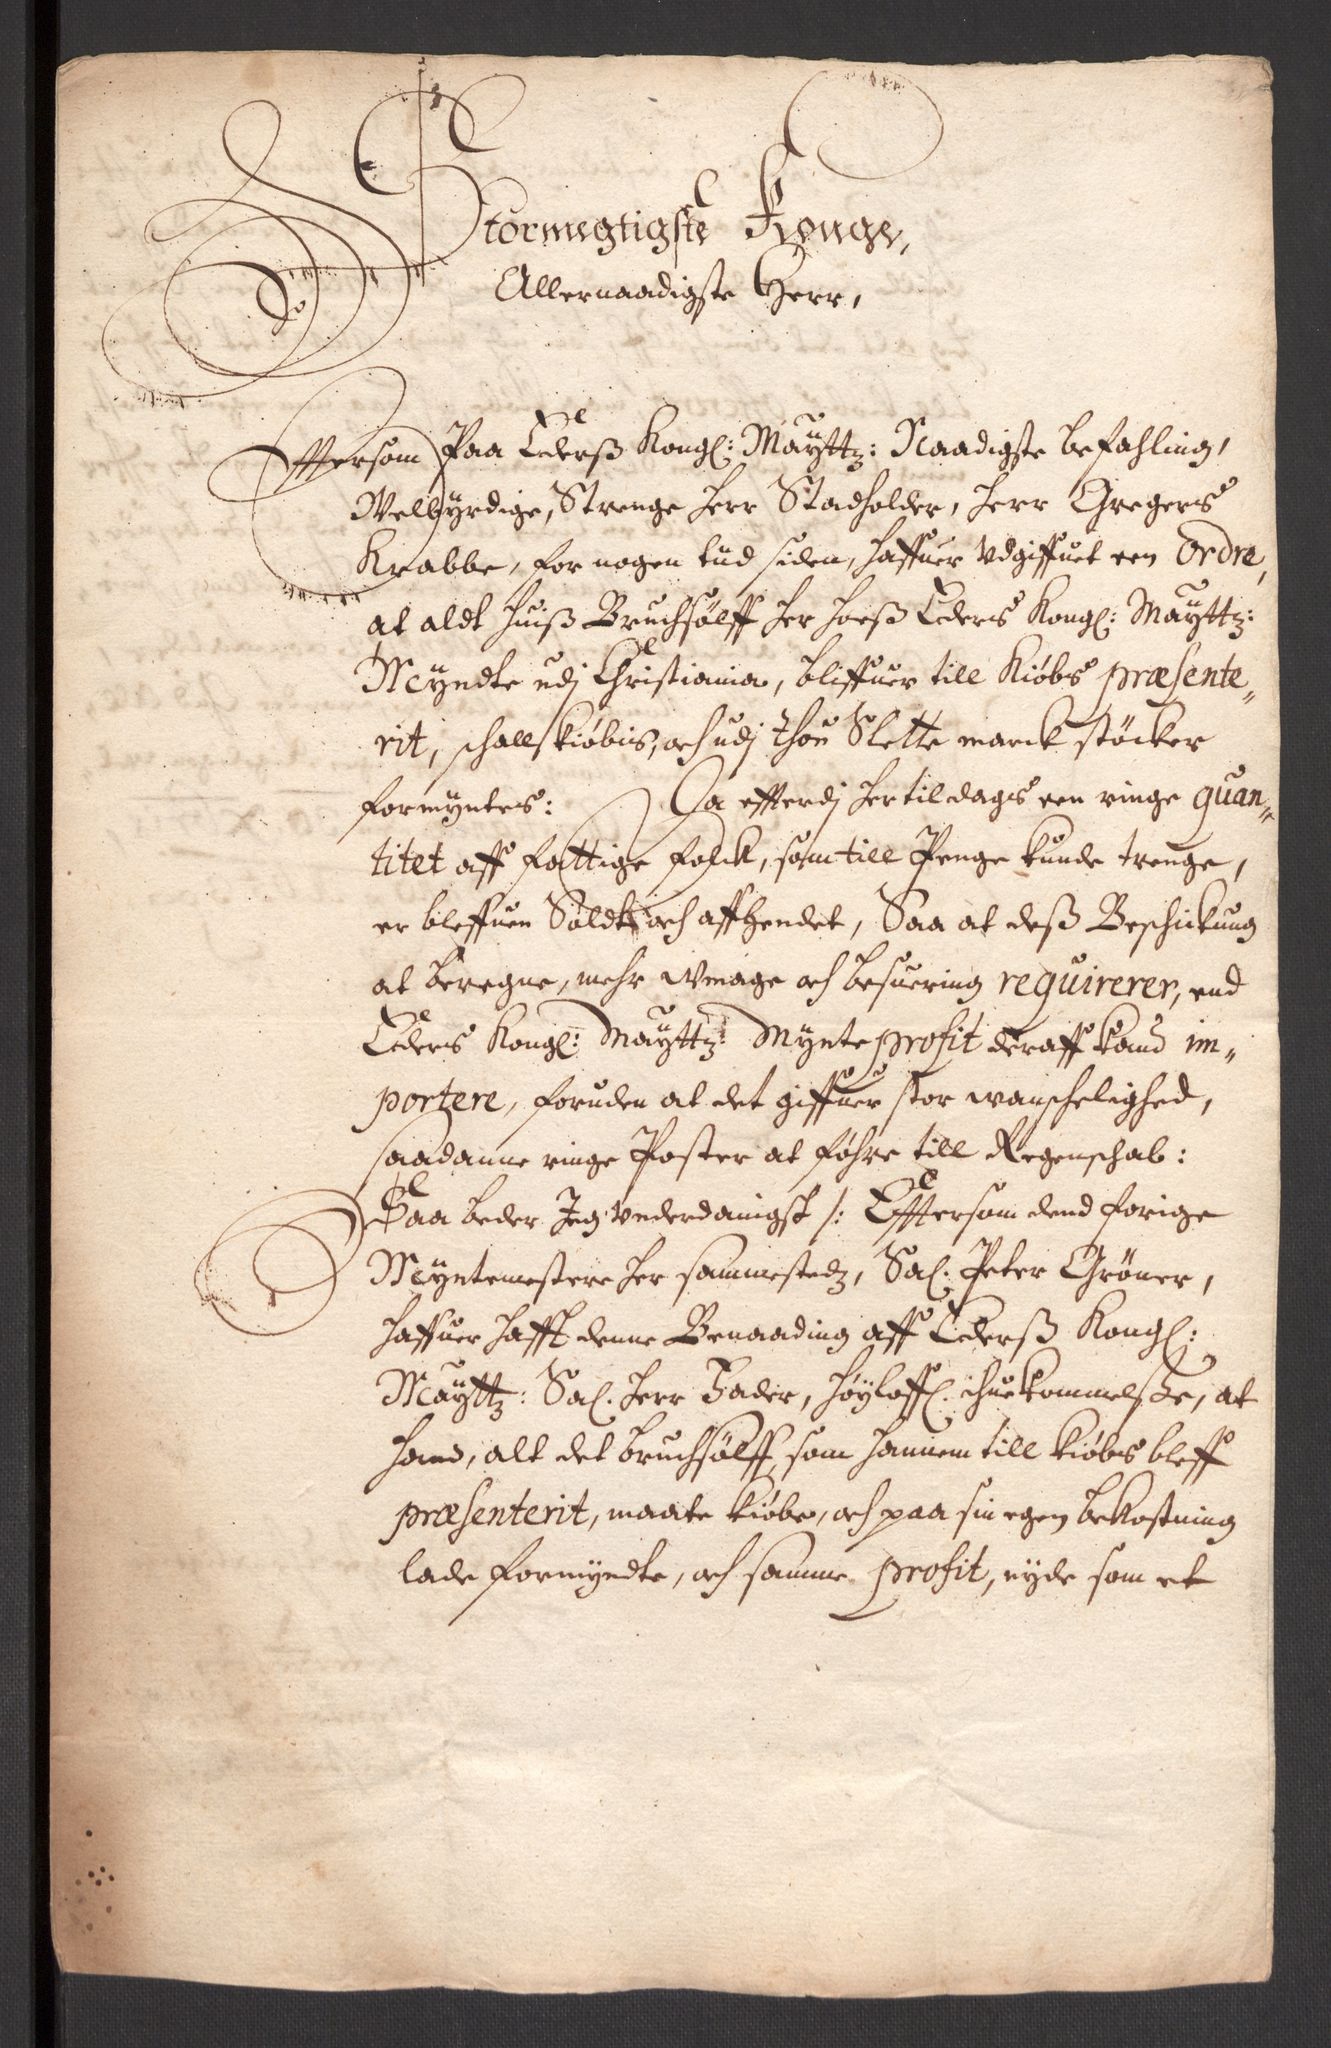 Stormegtigste Konge,
Allernaadigste Herr,
Effersom Paa Eders Kongl: Mayttz: Naadigste befahling,
Velbyrdige, Strenge Herr Stadholder, Herr Gregers
Krabbe, for nogen tiid siden, haffuer Vdgiffuet een Ordre,
at aldt huiß Bruchsølff her hoeß Eders Kongl: Mayttz:
Myndte udj Christiania, bliffuer till Kiøbs præsente-
rit, schall kiøbis, och udj thou Slette marck støcker
formyntes: Da effterdj hertildags een ringe quan-
titet aff fattige folck, som till Penge kunde trenge,
er bleffuen Soldt och affhendet, Saa at deß Beschickung
at beregne, mehr Vmage och besuering requirerer, end
Eders Kongl: Mayttz: Mynte profit deraff kand im-
portere, foruden at det giffuer stor wanschelighed,
saadanne ringe Poster at føhre till Regenschab:
Saa beder Jeg Vnderdanigst /: Efftersom dend forige
Myntemestere her sammestedz, Sal. Peter Grøner,
haffuer hafft denne Benaading aff Eders Kongl:
Mayttz: Sal. Herr Fader, høyloffl. ihuekommelße, at
hand, alt det bruchsølff, som hannem till kiøbs bleff
præsenterit, maate kiøbe, och paa sin egen bekostning
lade formyndte, och samme profit, nyde som et